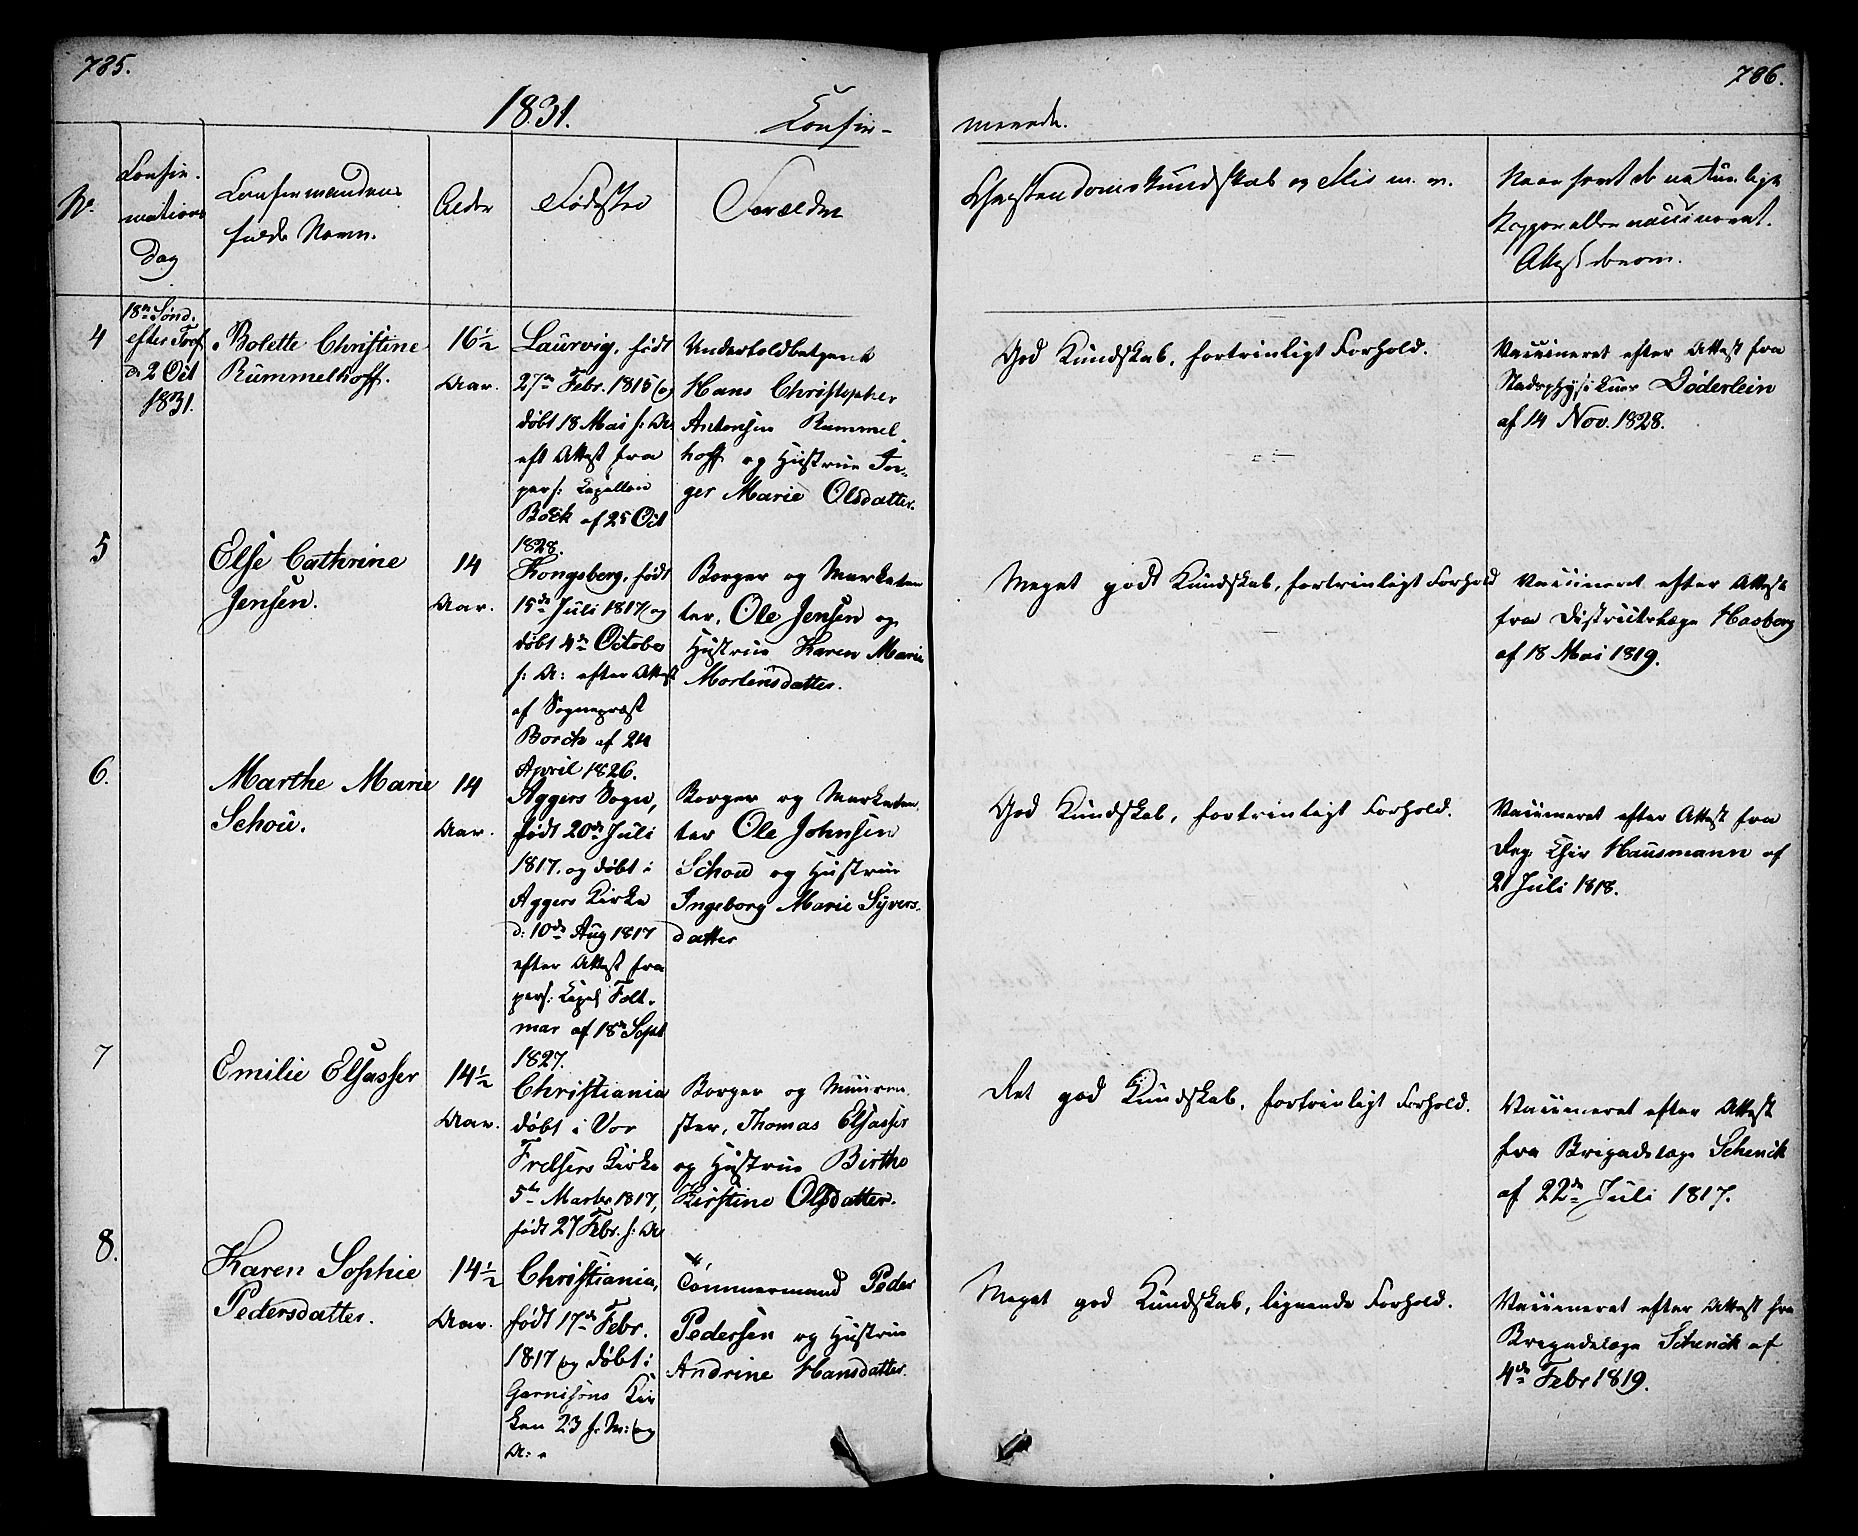 785.
1831.
Confir-
No.
Confir-
mations
Dag
Confirmandens
fulde Navn.
Alder
Fødested
Forældre
4
18de Sønd.
efter Tref.
d. 2 Oct
1831.
Bolette Christine
Rummelhoff.
16½
Aar.
Laurvig, født
27de Febr. 1815 og
døbt 18 Mai s: A:
eft Attest fra
pers: Capellan
Boeck af 25 Oct
1828.
Undertoldbetjent
Hans Christopher
Antonsen Rummel-
hoff og Hustrue In-
ger Marie Olsdatter.
5
Else Cathrine
Jensen.
14
Aar.
Kongsberg, født
15de Juli 1817 og
døbt 4de October
s: A: efter Attest
af Sognepræst
Borch af 24
April 1826.
Borger og Marketen
ter, Ole Jensen og
Hustrue Karen Marie
Mortensdatter.
6.
Marthe Marie
Schou.
14
Aar.
Aggers Sogn,
født 20de Juli
1817. og døbt i
Aggers Kirke
d: 10de Aug 1817
efter Attest fra
pers: Capel Folt-
mar af 18de Sept
1827.
Borger og Marketen
ter Ole Johnsen
Schou og Hustrue
Ingeborg Marie Syvers-
datter
7
Emilie Elsasser
14½
Aar.
Christiania
døbt i Vor
Frelsers Kirke
5te Marts 1817,
født 27 Febr. s: A:
Borger og Muurme
ster, Thomas Elsasser
og Hustrue Birthe
Kirstine Olsdatter.
8.
Karen Sophie
Pedersdatter.
14½
Aar.
Christiania,
født 17de Febr.
1817 og døbt i
Garnisons Kir
ken 23 s: M: og
A:
Tømmermand Peder
Pedersen og Hustrue
Andrine Hansdatter.
786.
merede.
Christendomskundskab og Flid m. v.
Naar havt de naturlige
Kopper eller vaccineret.
Attest derom.
God Kundskab, fortrinligt Forhold.
Vaccineret efter Attest fra
Stadsphysikus Døderlein
af 14 Nov. 1828.
Meget godt Kundskab, fortrinligt Forhold
Vaccineret efter Attest
fra Districtslæge Hasberg
af 18 Mai 1819.
God Kundskab, fortrinligt Forhold.
Vaccineret efter Attest fra
Reg. Chir Hausmann af
21 Juli 1818.
Ret god Kundskab, fortrinligt Forhold.
Vaccineret efter Attest
fra Brigadelæge Schenck
af 22de Juli 1817.
Meget god Kundskab, lignende Forhold.
Vaccineret efter Attest fra
Brigadelæge Schenck af
4de Febr 1819.